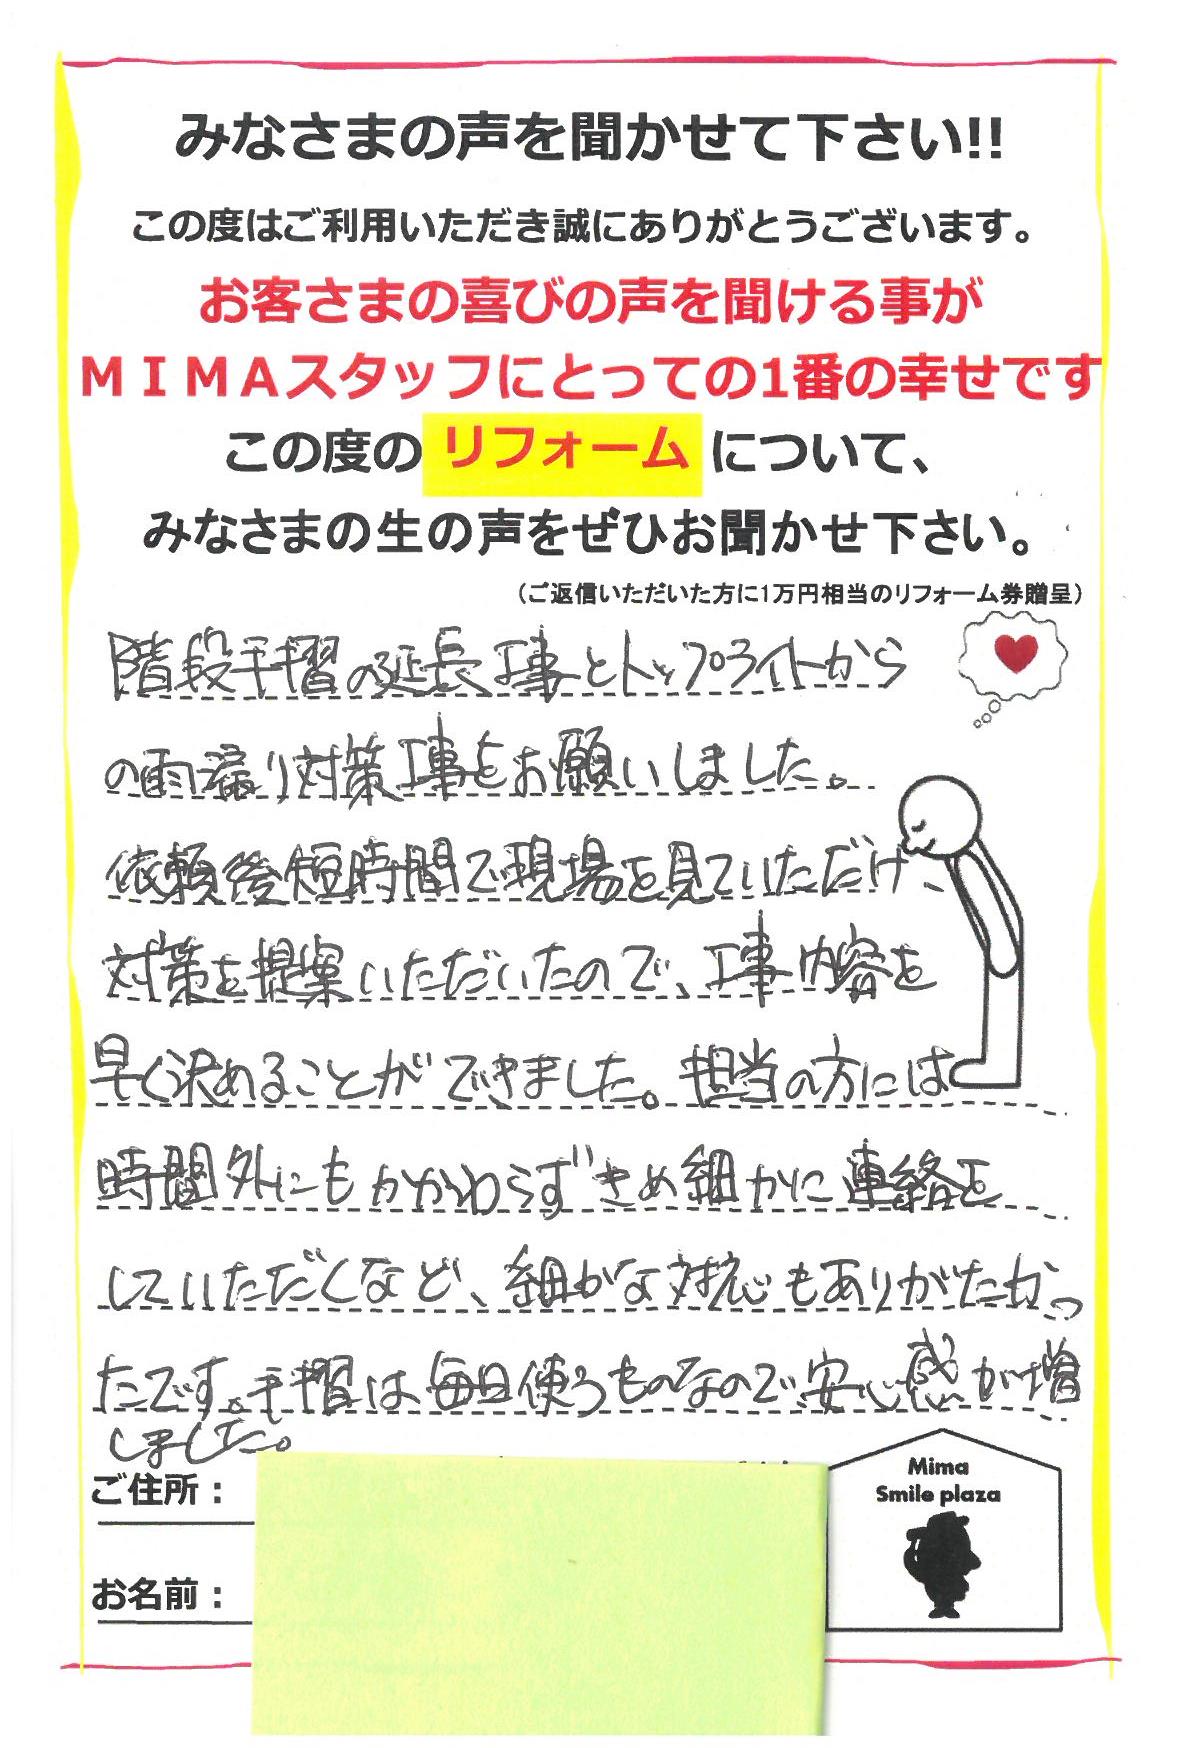 みなさまの声を聞かせて下さい!!
この度はご利用いただき誠にありがとうございます。
お客さまの喜びの声を聞ける事が
ＭＩＭＡスタッフにとっての1番の幸せです
この度の リフォーム について、
みなさまの生の声をぜひお聞かせ下さい。
（ご返信いただいた方に1万円相当のリフォーム券贈呈）
階段手摺の延長工事とトップライトから
の雨漏り対策工事をお願いしました。
依頼後短時間で現場を見ていただけ、
対策を提案いただいたので、工事内容を
早く決めることができました。担当の方には
時間外にもかかわらずきめ細かに連絡を
していただくなど、細かな対応もありがたかっ
たです。手摺は毎日使うものなので安心感が増
しました。
ご住所：
お名前：
Mima
Smile plaza